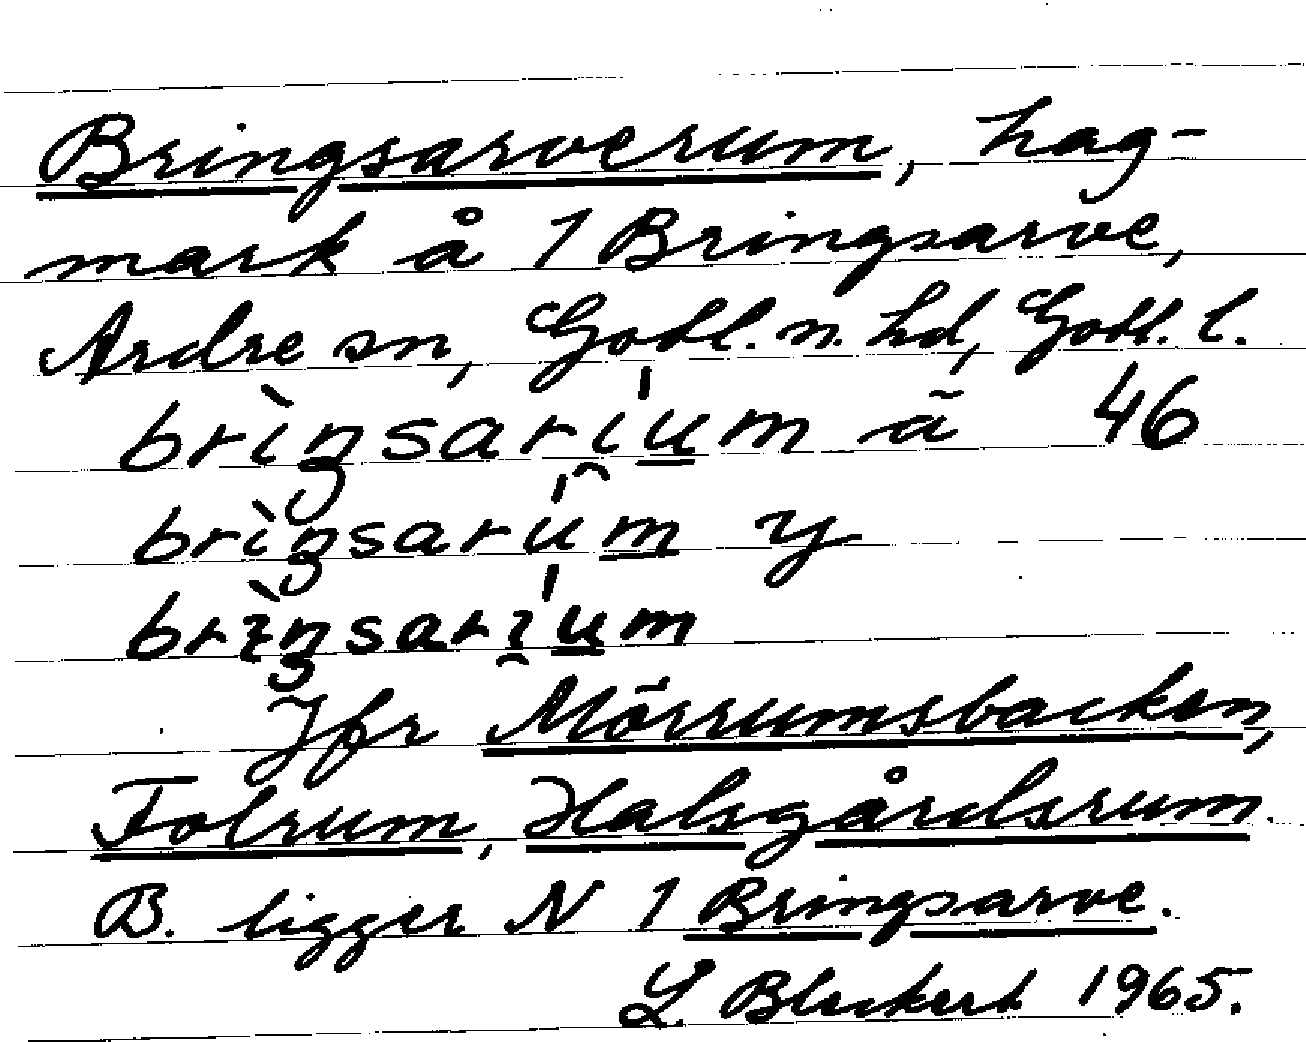 Bringsarverum, hag-
mark å 1 Bringsarve,
Ardre sn, Gotl. n. hd, Gotl. l.
brìŋsarium ã 46
brìŋsarûm y
brìŋsarium
Jfr Mörrumsbacken,
Tolrum, Halsgårdsrum.
B. ligger N 1 Bringsarve.
L. Bleckert 1965.